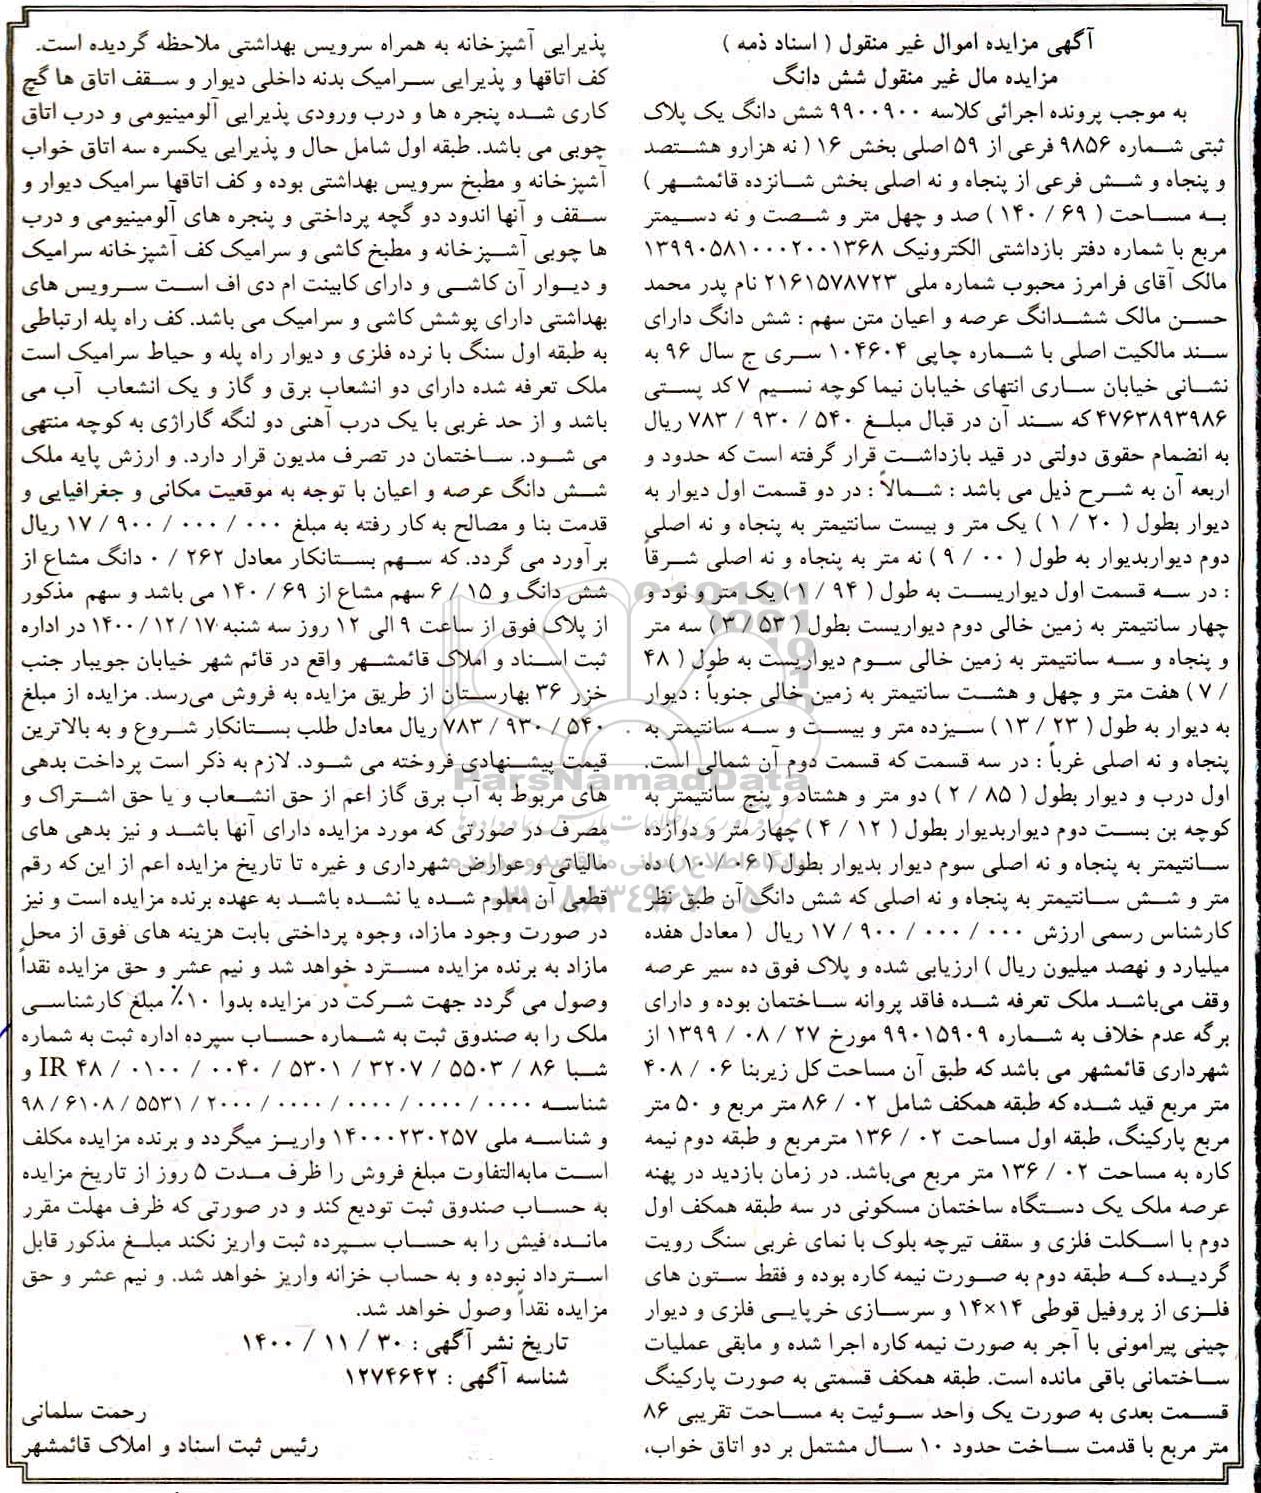 آگهی مزایده اموال غیر منقول ( اسناد ذمه )
مزایده مال غیر منقول شش دانگ
به موجب پرونده اجرائی کلاسه ۹۹۰۰۹۰۰ شش دانگ یک پلاک
ثبتی شماره ۹۸۵۶ فرعی از ۵۹ اصلی بخش ۱۶ ( نه هزارو هشتصد
و پنجاه و شش فرعی از پنجاه و نه اصلی بخش شانزده قائمشهر )
به مساحت ( ۶۹ / ۱۴۰ ) صد و چهل متر و شصت و نه دسیمتر
مربع با شماره دفتر بازداشتی الکترونیک ۱۳۹۹۰۵۸۱۰۰۰۲۰۰۱۳۶۸
مالک آقای فرامرز محبوب شماره ملی ۲۱۶۱۵۷۸۷۲۳ نام پدر محمد
حسن مالک ششدانگ عرصه و اعیان متن سهم : شش دانگ دارای
سند مالکیت اصلی با شماره چاپی ۱۰۴۶۰۴ سری ج سال ۹۶ به
نشانی خیابان ساری انتهای خیابان نیما کوچه نسیم ۷ کد پستی
۴۷۶۳۸۹۳۹۸۶ که سند آن در قبال مبلغ ۵۴۰ / ۹۳۰ / ۷۸۳ ریال
به انضمام حقوق دولتی در قید بازداشت قرار گرفته است که حدود و
اربعه آن به شرح ذیل می باشد : شمالاً : در دو قسمت اول دیوار به
دیوار بطول ( ۲۰ / ۱ ) یک متر و بیست سانتیمتر به پنجاه و نه اصلی
دوم دیواربدیوار به طول ( ۰۰ / ۹ ) نه متر به پنجاه و نه اصلی شرقاً
: در سه قسمت اول دیواریست به طول ( ۹۴ / ۱ ) یک متر و نود و
چهار سانتیمتر به زمین خالی دوم دیواریست بطول ( ۵۳ / ۳ ) سه متر
و پنجاه و سه سانتیمتر به زمین خالی سوم دیواریست به طول ( ۴۸
/ ۷ ) هفت متر و چهل و هشت سانتیمتر به زمین خالی جنوباً : دیوار
به دیوار به طول ( ۲۳ / ۱۳ ) سیزده متر و بیست و سه سانتیمتر به
پنجاه و نه اصلی غرباً : در سه قسمت که قسمت دوم آن شمالی است.
اول درب و دیوار بطول ( ۸۵ / ۲ ) دو متر و هشتاد و پنج سانتیمتر به
کوچه بن بست دوم دیواربدیوار بطول ( ۱۲ / ۴ ) چهار متر و دوازده
سانتیمتر به پنجاه و نه اصلی سوم دیوار بدیوار بطول ( ۰۶ / ۱۰ ) ده
متر و شش سانتیمتر به پنجاه و نه اصلی که شش دانگ آن طبق نظر
کارشناس رسمی ارزش ۰۰۰ / ۰۰۰ / ۹۰۰ / ۱۷ ریال ( معادل هفده
میلیارد و نهصد میلیون ریال ) ارزیابی شده و پلاک فوق ده سیر عرصه
وقف می‌باشد ملک تعرفه شده فاقد پروانه ساختمان بوده و دارای
برگه عدم خلاف به شماره ۹۹۰۱۵۹۰۹ مورخ ۲۷ / ۰۸ / ۱۳۹۹ از
شهرداری قائمشهر می باشد که طبق آن مساحت کل زیربنا ۰۶ / ۴۰۸
متر مربع قید شده که طبقه همکف شامل ۰۲ / ۸۶ متر مربع و ۵۰ متر
مربع پارکینگ، طبقه اول مساحت ۰۲ / ۱۳۶ مترمربع و طبقه دوم نیمه
کاره به مساحت ۰۲ / ۱۳۶ متر مربع می‌باشد. در زمان بازدید در پهنه
عرصه ملک یک دستگاه ساختمان مسکونی در سه طبقه همکف اول
دوم با اسکلت فلزی و سقف تیرچه بلوک با نمای غربی سنگ رویت
گردیده که طبقه دوم به صورت نیمه کاره بوده و فقط ستون های
فلزی از پروفیل قوطی ۱۴×۱۴ و سرسازی خرپایی فلزی و دیوار
چینی پیرامونی با آجر به صورت نیمه کاره اجرا شده و مابقی عملیات
ساختمانی باقی مانده است. طبقه همکف قسمتی به صورت پارکینگ
قسمت بعدی به صورت یک واحد سوئیت به مساحت تقریبی ۸۶
متر مربع با قدمت ساخت حدود ۱۰ سال مشتمل بر دو اتاق خواب،
پذیرایی آشپزخانه به همراه سرویس بهداشتی ملاحظه گردیده است.
کف اتاقها و پذیرایی سرامیک بدنه داخلی دیوار و سقف اتاق ها گچ
کاری شده پنجره ها و درب ورودی پذیرایی آلومینیومی و درب اتاق
چوبی می باشد. طبقه اول شامل حال و پذیرایی یکسره سه اتاق خواب
آشپزخانه و مطبخ سرویس بهداشتی بوده و کف اتاقها سرامیک دیوار و
سقف و آنها اندود دو گچه پرداختی و پنجره های آلومینیومی و درب
ها چوبی آشپزخانه و مطبخ کاشی و سرامیک کف آشپزخانه سرامیک
و دیوار آن کاشی و دارای کابینت ام دی اف است سرویس های
بهداشتی دارای پوشش کاشی و سرامیک می باشد. کف راه پله ارتباطی
به طبقه اول سنگ با نرده فلزی و دیوار راه پله و حیاط سرامیک است
ملک تعرفه شده دارای دو انشعاب برق و گاز و یک انشعاب آب می
باشد و از حد غربی با یک درب آهنی دو لنگه گاراژی به کوچه منتهی
می شود. ساختمان در تصرف مدیون قرار دارد. و ارزش پایه ملک
شش دانگ عرصه و اعیان با توجه به موقعیت مکانی و جغرافیایی و
قدمت بنا و مصالح به کار رفته به مبلغ ۰۰۰ / ۰۰۰ / ۹۰۰ / ۱۷ ریال
برآورد می گردد.که سهم بستانکار معادل ۲۶۲ / ۰ دانگ مشاع از
شش دانگ و ۱۵ / ۶ سهم مشاع از ۶۹ / ۱۴۰ می باشد و سهم مذکور
از پلاک فوق از ساعت ۹ الی ۱۲ روز سه شنبه ۱۴۰۰/۱۲/۱۷ در اداره
ثبت اسناد و املاک قائمشهر واقع در قائم شهر خیابان جویبار جنب
خزر ۳۶ بهارستان از طریق مزایده به فروش می‌رسد. مزایده از مبلغ
۵۴۰ / ۹۳۰ / ۷۸۳ ریال معادل طلب بستانکار شروع و به بالاترین
قیمت پیشنهادی فروخته می شود. لازم به ذکر است پرداخت بدهی
های مربوط به آب برق گاز اعم از حق انشعاب و یا حق اشتراک و
مصرف در صورتی که مورد مزایده دارای آنها باشد و نیز بدهی های
مالیاتی و عوارض شهرداری و غیره تا تاریخ مزایده اعم از این که رقم
قطعی آن معلوم شده یا نشده باشد به عهده برنده مزایده است و نیز
در صورت وجود مازاد، وجوه پرداختی بابت هزینه های فوق از محل
مازاد به برنده مزایده مسترد خواهد شد و نیم عشر و حق مزایده نقداً
وصول می گردد جهت شرکت در مزایده بدوا ۱۰٪ مبلغ کارشناسی
ملک را به صندوق ثبت به شماره حساب سپرده اداره ثبت به شماره
شبا ۸۶ / ۵۵۰۳ / ۳۲۰۷ / ۵۳۰۱ / ۰۰۴۰ / ۰۱۰۰ / ۴۸ IR و
شناسه ۰۰۰۰ / ۰۰۰۰ / ۰۰۰۰ / ۰۰۰۰ / ۲۰۰۰ / ۵۵۳۱ / ۶۱۰۸ / ۹۸
و شناسه ملی ۱۴۰۰۰۲۳۰۲۵۷ واریز میگردد و برنده مزایده مکلف
است مابه‌التفاوت مبلغ فروش را ظرف مدت ۵ روز از تاریخ مزایده
به حساب صندوق ثبت تودیع کند و در صورتی که ظرف مهلت مقرر
مانده فیش را به حساب سپرده ثبت واریز نکند مبلغ مذکور قابل
استرداد نبوده و به حساب خزانه واریز خواهد شد. و نیم عشر و حق
مزایده نقداً وصول خواهد شد.
تاریخ نشر آگهی : ۳۰ / ۱۱ / ۱۴۰۰
شناسه آگهی : ۱۲۷۴۶۴۲
رحمت سلمانی
رئیس ثبت اسناد و املاک قائمشهر
ParsNamadData
۰۲۱-۸۸۳۴۹۶۷۰-۵